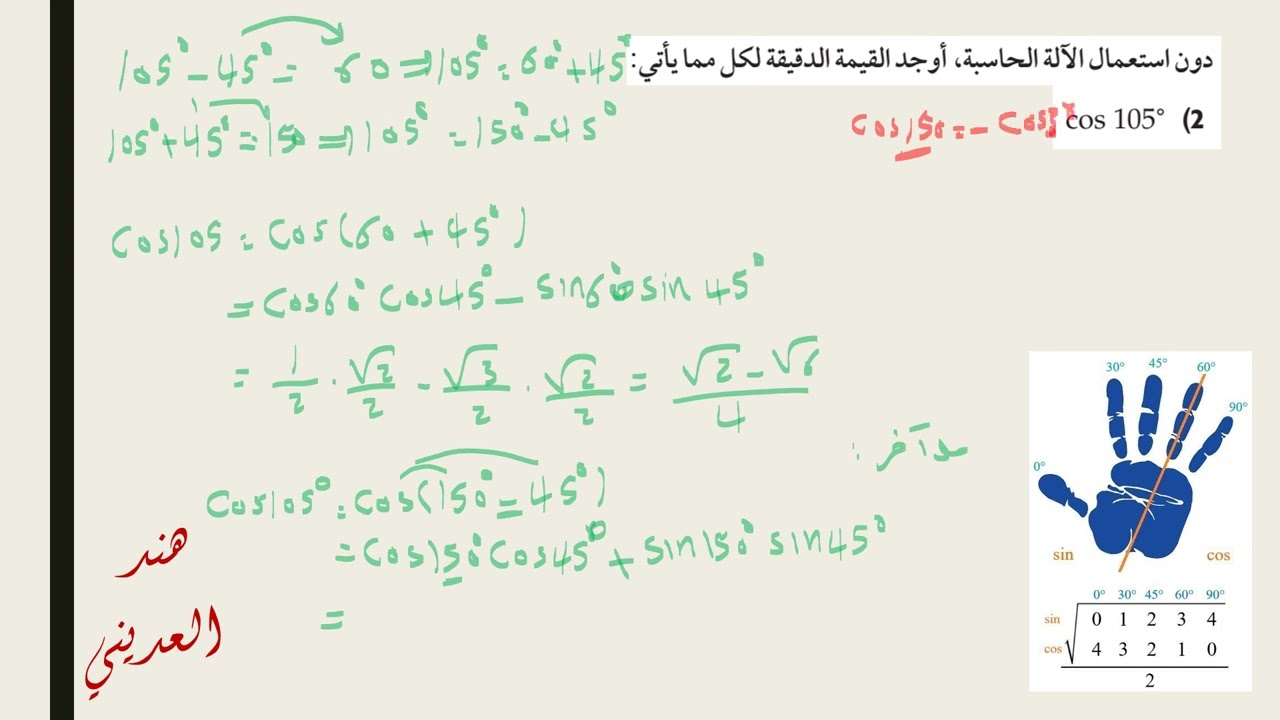 دون استعمال الآلة الحاسبة، أوجد القيمة الدقيقة لكل مما يأتي:
2) cos 105°
cos150 = - cos3
105° - 45° = 60 ⇒ 105° = 60° + 45°
105° + 45° = 150 ⇒ 105° = 150° - 45°
cos105 = cos(60 + 45°)
= cos60° cos45° - sin60° sin 45°
= 1/2 · √2/2 - √3/2 · √2/2 = (√2 - √6)/4
حل آخر :
cos105° = cos(150° - 45°)
= cos150° cos45° + sin150° sin45°
=
هند
العديني
0° 30° 45° 60° 90°
sin cos
0° 30° 45° 60° 90°
sin √ 0 1 2 3 4
cos 4 3 2 1 0
2